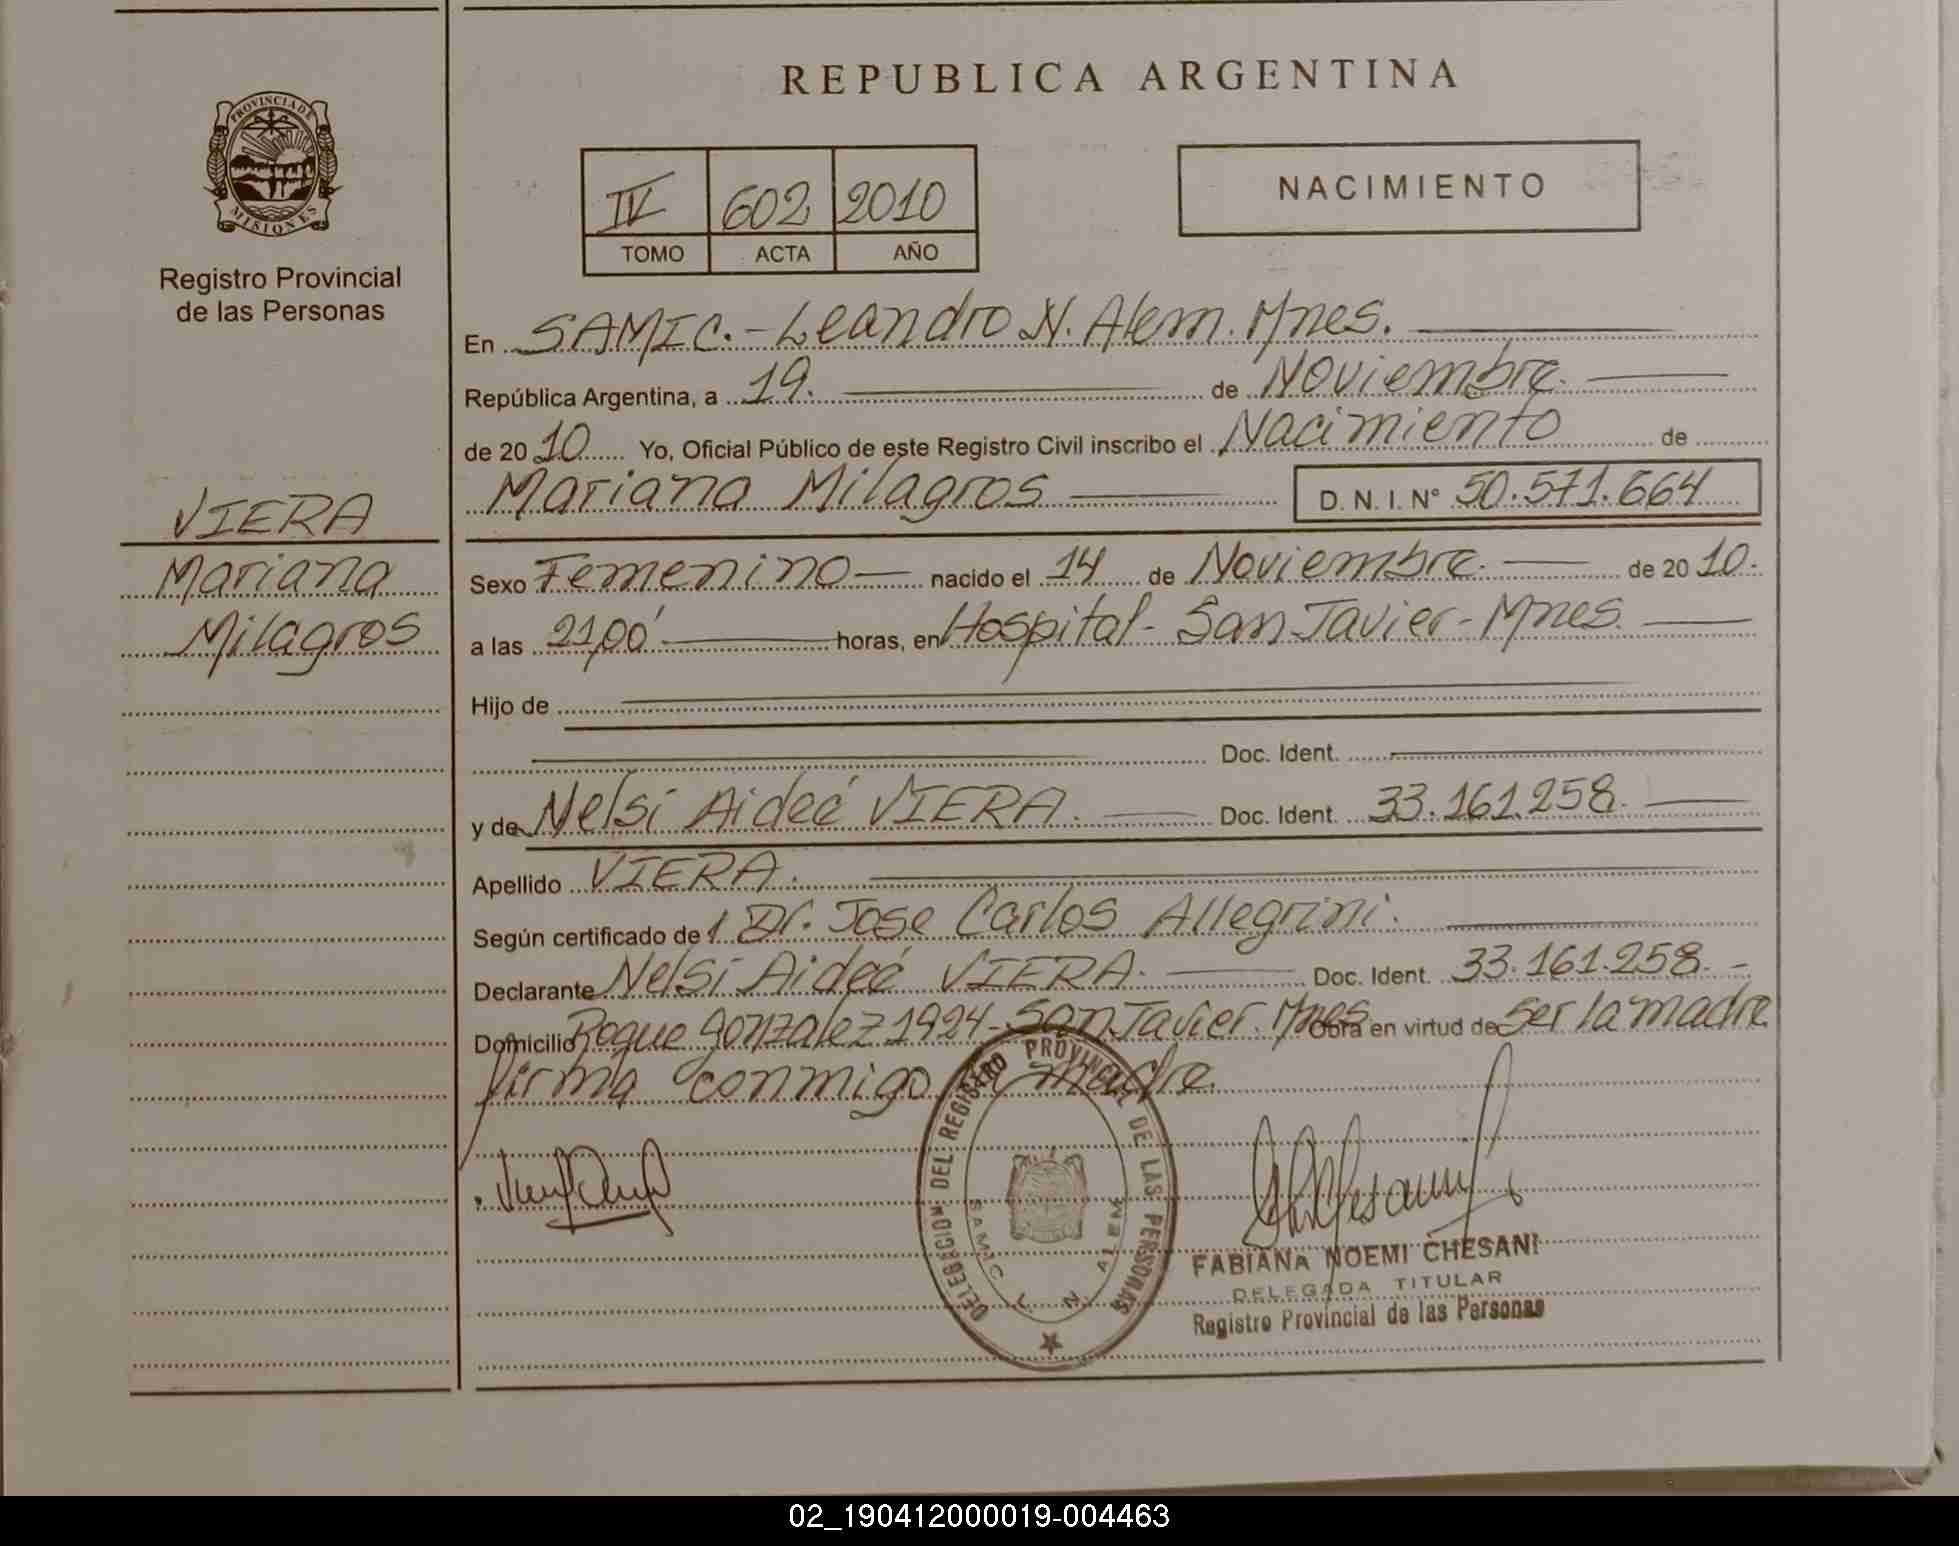 REPUBLICA ARGENTINA
PROVINCIA DE
MISIONES
Registro Provincial
de las Personas
IV 602 2010
TOMO ACTA AÑO
NACIMIENTO
En SAMIC.- Leandro N. Alem. Mnes.
República Argentina, a 19. de Noviembre.
de 2010 Yo, Oficial Público de este Registro Civil inscribo el Nacimiento de
Mariana Milagros D. N. I. N° 50.571.664
VIERA
Mariana
Milagros
Sexo Femenino nacido el 14 de Noviembre. de 2010.
a las 21,00' horas, en Hospital - San Javier - Mnes.
Hijo de
Doc. Ident.
y de Nelsi Aideé VIERA. Doc. Ident. 33.161.258.
Apellido VIERA.
Según certificado de 1 Dr. Jose Carlos Allegrini.
Declarante Nelsi Aideé VIERA. Doc. Ident. 33.161.258. -
Domicilio Roque Gonzalez 1924 - San Javier. Mnes Obra en virtud de Ser la madre
firma conmigo la madre.
DELEGACION DEL REGISTRO PROVINCIAL DE LAS PERSONAS
SAMIC L. N. ALEM
FABIANA NOEMI CHESANI
DELEGADA TITULAR
Registro Provincial de las Personas
02_190412000019-004463